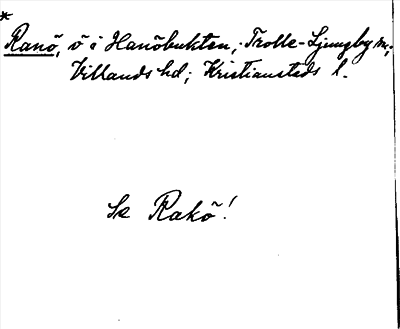 *
Ranö, ö i Hanöbukten, Trolle-Ljungby sn;
Villands hd; Kristianstads l.
Se Rakö!